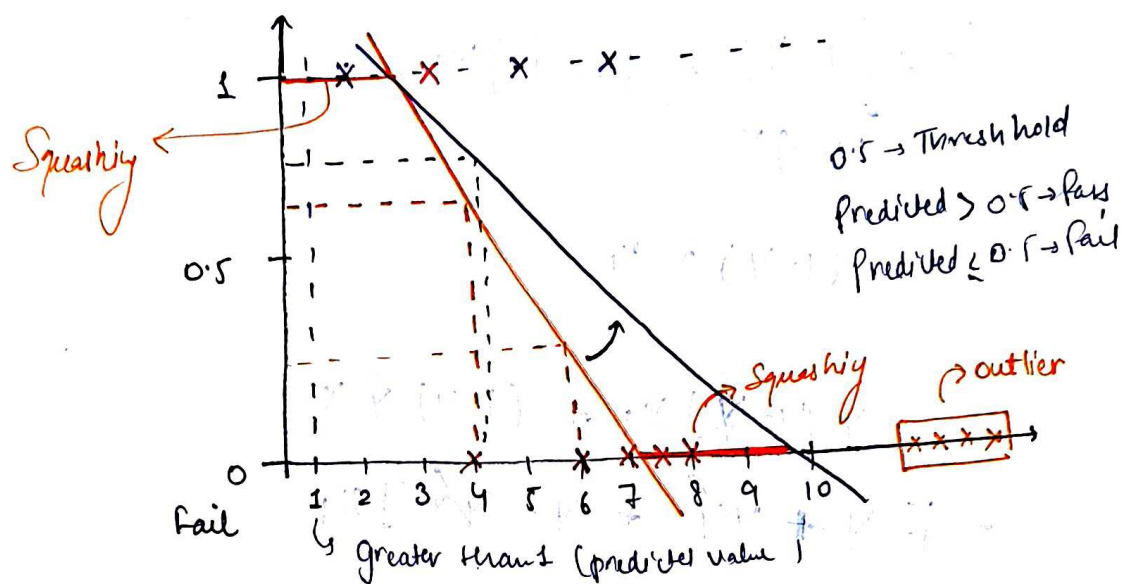 1
Squashing
0.5
0
0.5 → Threshhold
Predicted > 0.5 → Pass
Predicted ≤ 0.5 → Fail
Squashing
outlier
1 2 3 4 5 6 7 8 9 10
Fail
greater than 1 (predicted value)